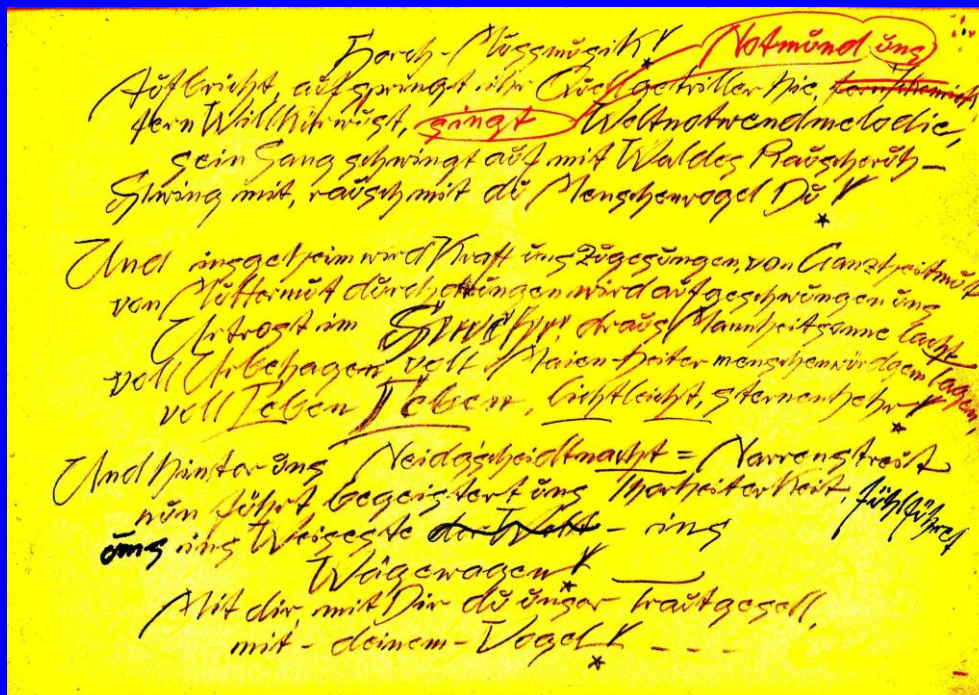 Horch - Mussmusik! Notmund uns
Aufbricht, aufspringt ihr Quellgetriller hie,
fern Willkürwust, singt Weltnotwendmelodie,
sein Sang schwingt auf mit Waldes Rauscheruh -
Schwing mit, rausch mit du Menschenvogel Du!
Und insgeheim wird Kraft uns zugesungen, von Ganzheitmut
von Muttermut durchdrungen wird aufgeschwungen uns
Urtrost im draus Mannheitsonne lacht
voll Urbehagen, voll Maien-heiter menschenwürdgem Tagen,
voll Leben Leben, lichtleicht, sternenhehr!
Und hinter uns Neidgscheidtnacht = Narrenstreit
nun führt begeistert uns Thorheiterkeit fühlführet
uns ins Weiseste der Welt - ins
Wägewagen!
Mit dir, mit Dir du unser Trautgesell,
mit - deinem - Vogel! - - -